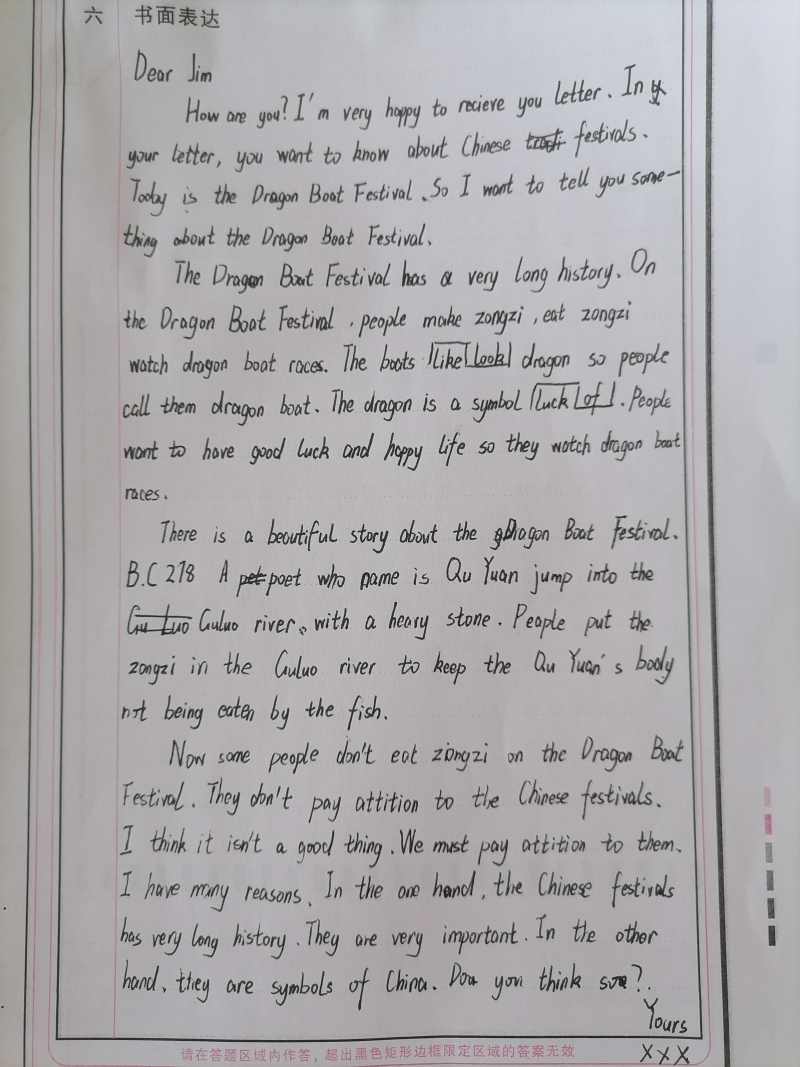 六 书面表达
Dear Jim
How are you? I'm very happy to recieve you letter. In
your letter, you want to know about Chinese festivals.
Today is the Dragon Boat Festival. So I want to tell you some-
thing about the Dragon Boat Festival.
The Dragon Boat Festival has a very long history. On
the Dragon Boat Festival, people make zongzi, eat zongzi
watch dragon boat races. The boats like look dragon so people
call them dragon boat. The dragon is a symbol luck of. People
want to have good luck and happy life so they watch dragon boat
races.
There is a beautiful story about the Dragon Boat Festival.
B.C 278 A poet who name is Qu Yuan jump into the
Guluo river, with a heary stone. People put the
zongzi in the Guluo river to keep the Qu Yuan's body
not being eaten by the fish.
Now some people don't eat ziongzi on the Dragon Boat
Festival. They don't pay attition to the Chinese festivals.
I think it isn't a good thing. We must pay attition to them.
I have many reasons. In the one hand, the Chinese festivals
has very long history. They are very important. In the other
hand, they are symbols of China. Dou you think soe?.
Yours
XXX
请在答题区域内作答，超出黑色矩形边框限定区域的答案无效